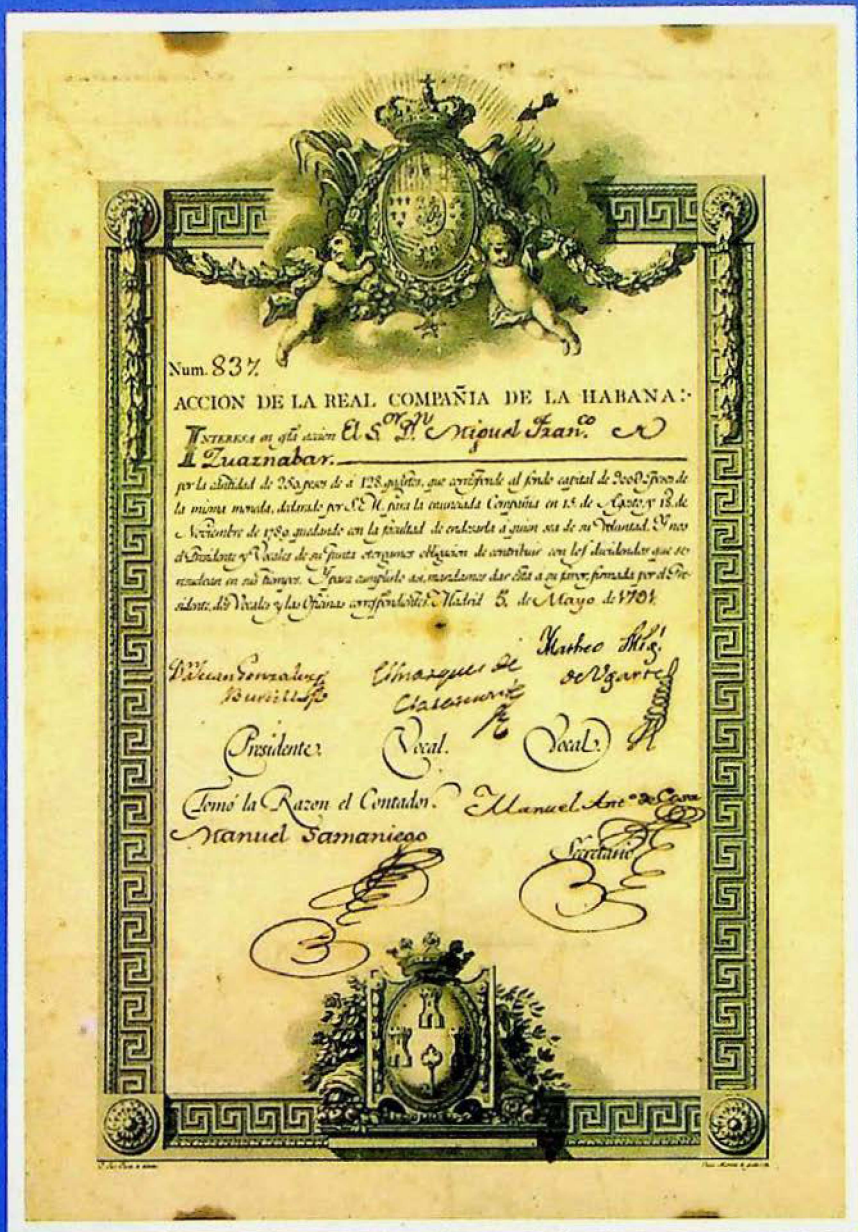 Num. 837.
ACCION DE LA REAL COMPAÑIA DE LA HABANA:
INTERESA en esta accion El S.or D.n Miguel Fran.co
Zuaznabar.
por la cantidad de 250 pesos de á 128 quartos, que corresponde al fondo capital de pesos de
la misma moneda, declarado por S.M. para la enunciada Compañia en 15 de Agosto, y 18 de
Noviembre de 1789, quedando con la facultad de endosarla á quien sea de su Voluntad. Y nos
el Presidente y Vocales de su Junta otorgamos obligacion de contribuir con los dividendos que se
resuelvan en sus tiempos. Y para cumplirlo asi, mandamos dar esta a su favor, firmada por el Pre-
sidente, dos Vocales y las Oficinas correspondientes. Madrid 5 de Mayo de 1791.
D.n Juan Gonzalez El Marques de Matheo Mig.l
de Ugarte
Presidente. Vocal. Vocal.
Tomó la Razon el Contador. Manuel Ant.o de Cosa
Manuel Samaniego
Secretario